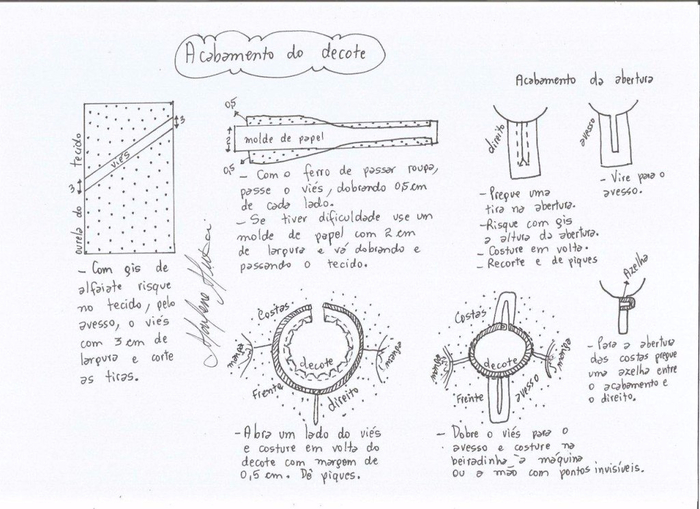 Acabamento do decote
Acabamento da abertura
ourela do tecido
viés
3
3
- Com giz de
alfaiate risque
no tecido, pelo
avesso, o viés
com 3 cm de
largura e corte
as tiras.
0,5
2
molde de papel
0,5
- Com o ferro de passar roupa,
passe o viés, dobrando 0,5 cm
de cada lado.
- Se tiver dificuldade use um
molde de papel com 2 cm
de largura e vá dobrando e
passando o tecido.
direito
- Pregue uma
tira na abertura.
- Risque com gis
a altura da abertura.
- Costure em volta.
- Recorte e de piques
avesso
- Vire para o
avesso.
Azelha
- Para a abertura
das costas pregue
uma azelha entre
o acabamento e
o direito.
Costas
manga
decote
manga
Frente
direito
- Abra um lado do viés
e costure em volta do
decote com margem de
0,5 cm. Dê piques.
Costas
manga
decote
manga
Frente
avesso
- Dobre o viés para o
avesso e costure na
beiradinha a máquina
ou a mão com pontos invisíveis.